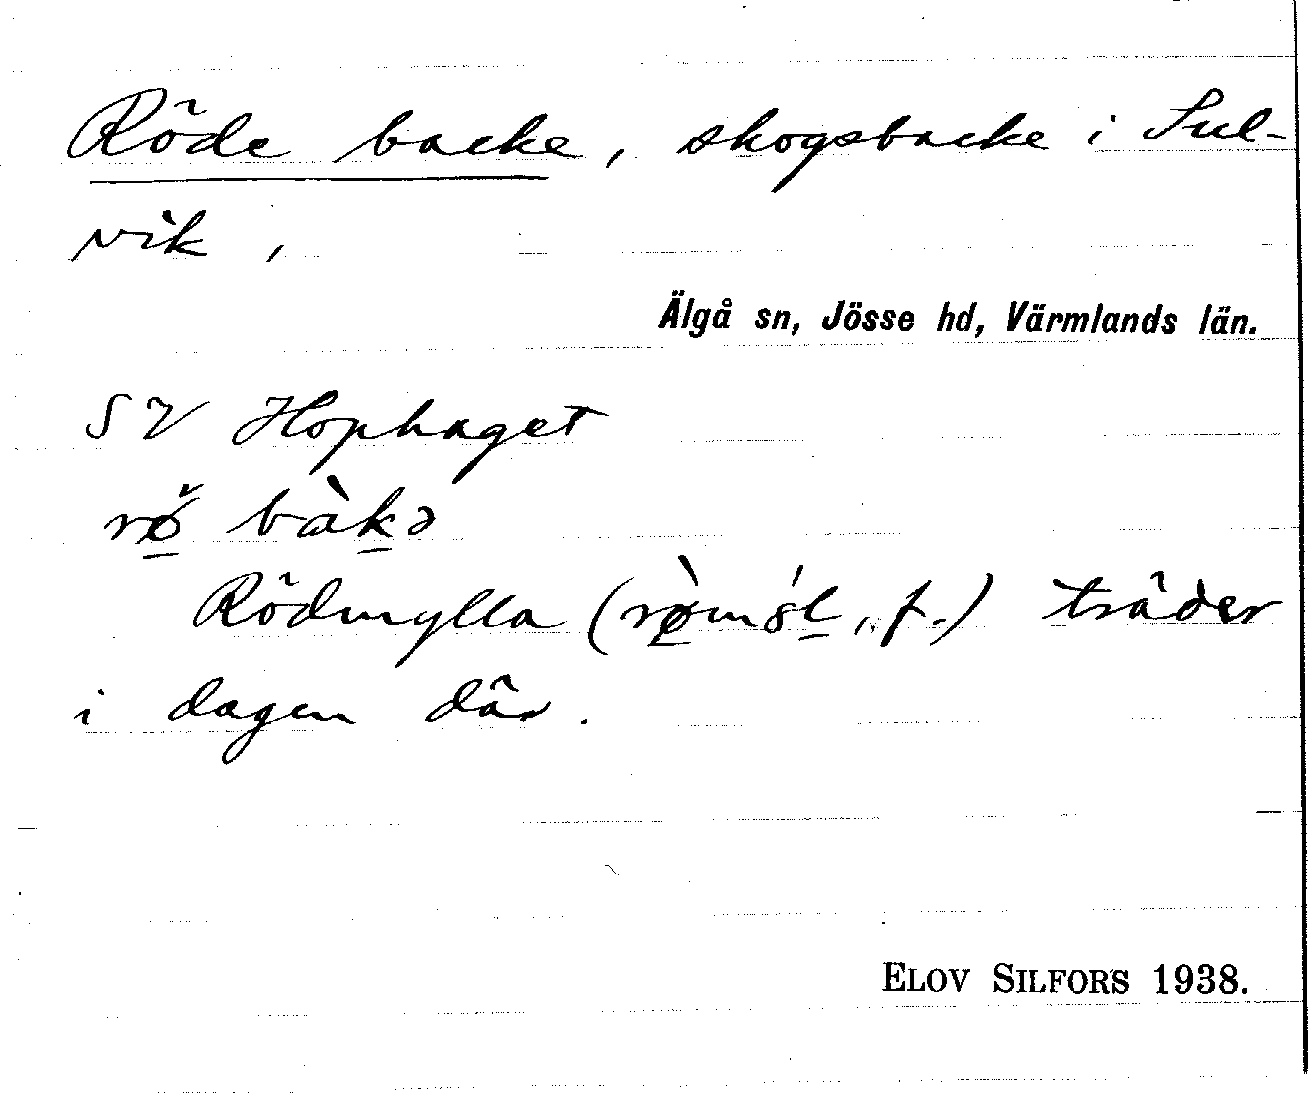 Röde backe, skogsbacke i Sul-
vik,
Älgå sn, Jösse hd, Värmlands län.
SV Hophaget
rø̌ bàkə
Rödmylla (rø̀m'8l, f.) träder
i dagen där.
ELOV SILFORS 1938.